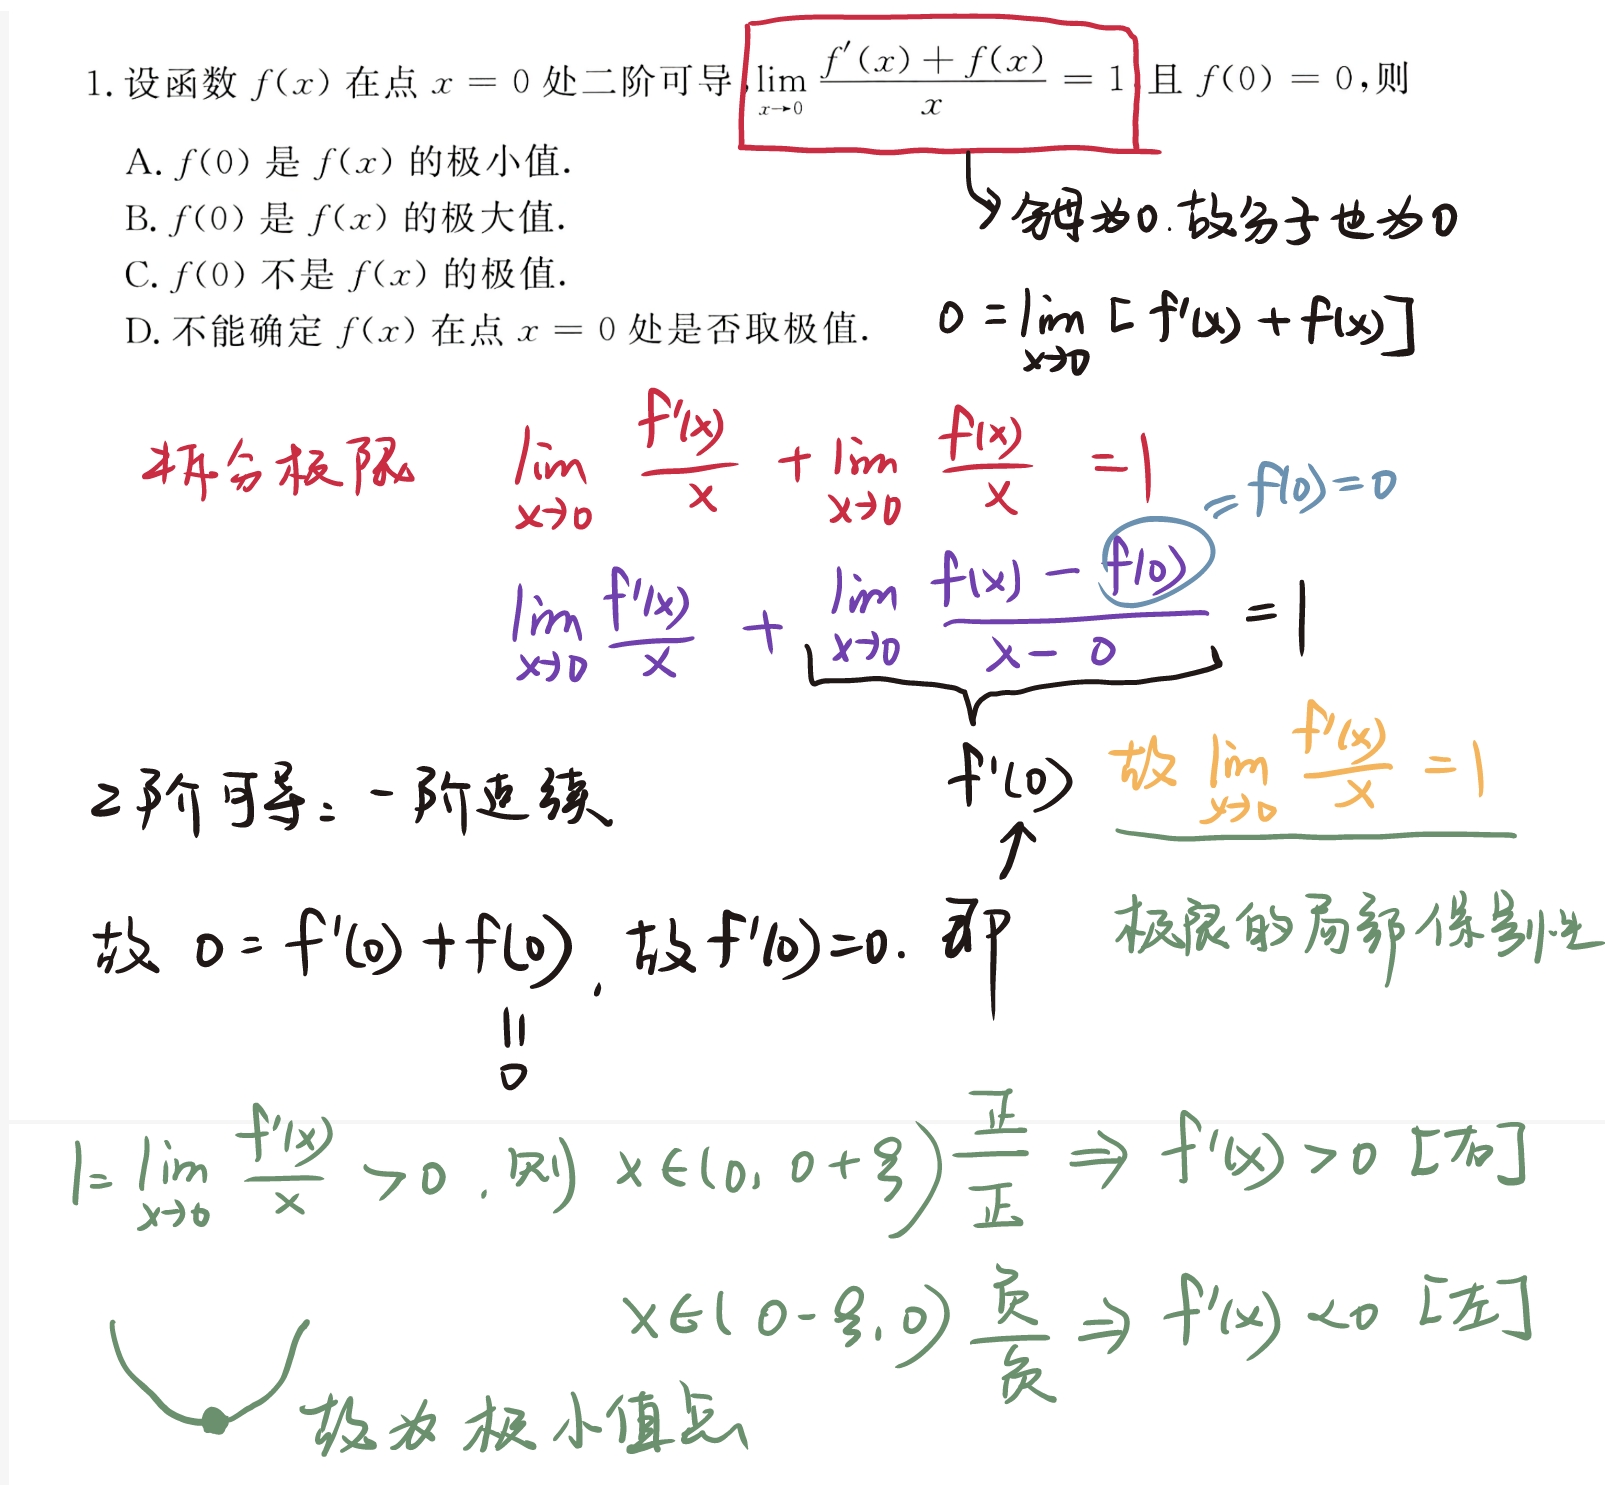 1. 设函数 f(x) 在点 x = 0 处二阶可导, lim_{x→0} (f′(x) + f(x))/x = 1 且 f(0) = 0,则
A. f(0) 是 f(x) 的极小值.
B. f(0) 是 f(x) 的极大值.
C. f(0) 不是 f(x) 的极值.
D. 不能确定 f(x) 在点 x = 0 处是否取极值.
分母为0.故分子也为0
0 = lim_{x→0} [f′(x) + f(x)]
拆分极限 lim_{x→0} f′(x)/x + lim_{x→0} f(x)/x = 1
= f(0) = 0
lim_{x→0} f′(x)/x + lim_{x→0} (f(x) − f(0))/(x − 0) = 1
f′(0) 故 lim_{x→0} f′(x)/x = 1
2阶可导: 一阶连续
极限的局部保号性
故 0 = f′(0) + f(0), 故 f′(0) = 0. 即
=
0
1 = lim_{x→0} f′(x)/x > 0, 则 x∈(0, 0+ξ) 正/正 ⇒ f′(x) > 0 [右]
x∈(0−ξ, 0) 负/负 ⇒ f′(x) < 0 [左]
故为极小值点